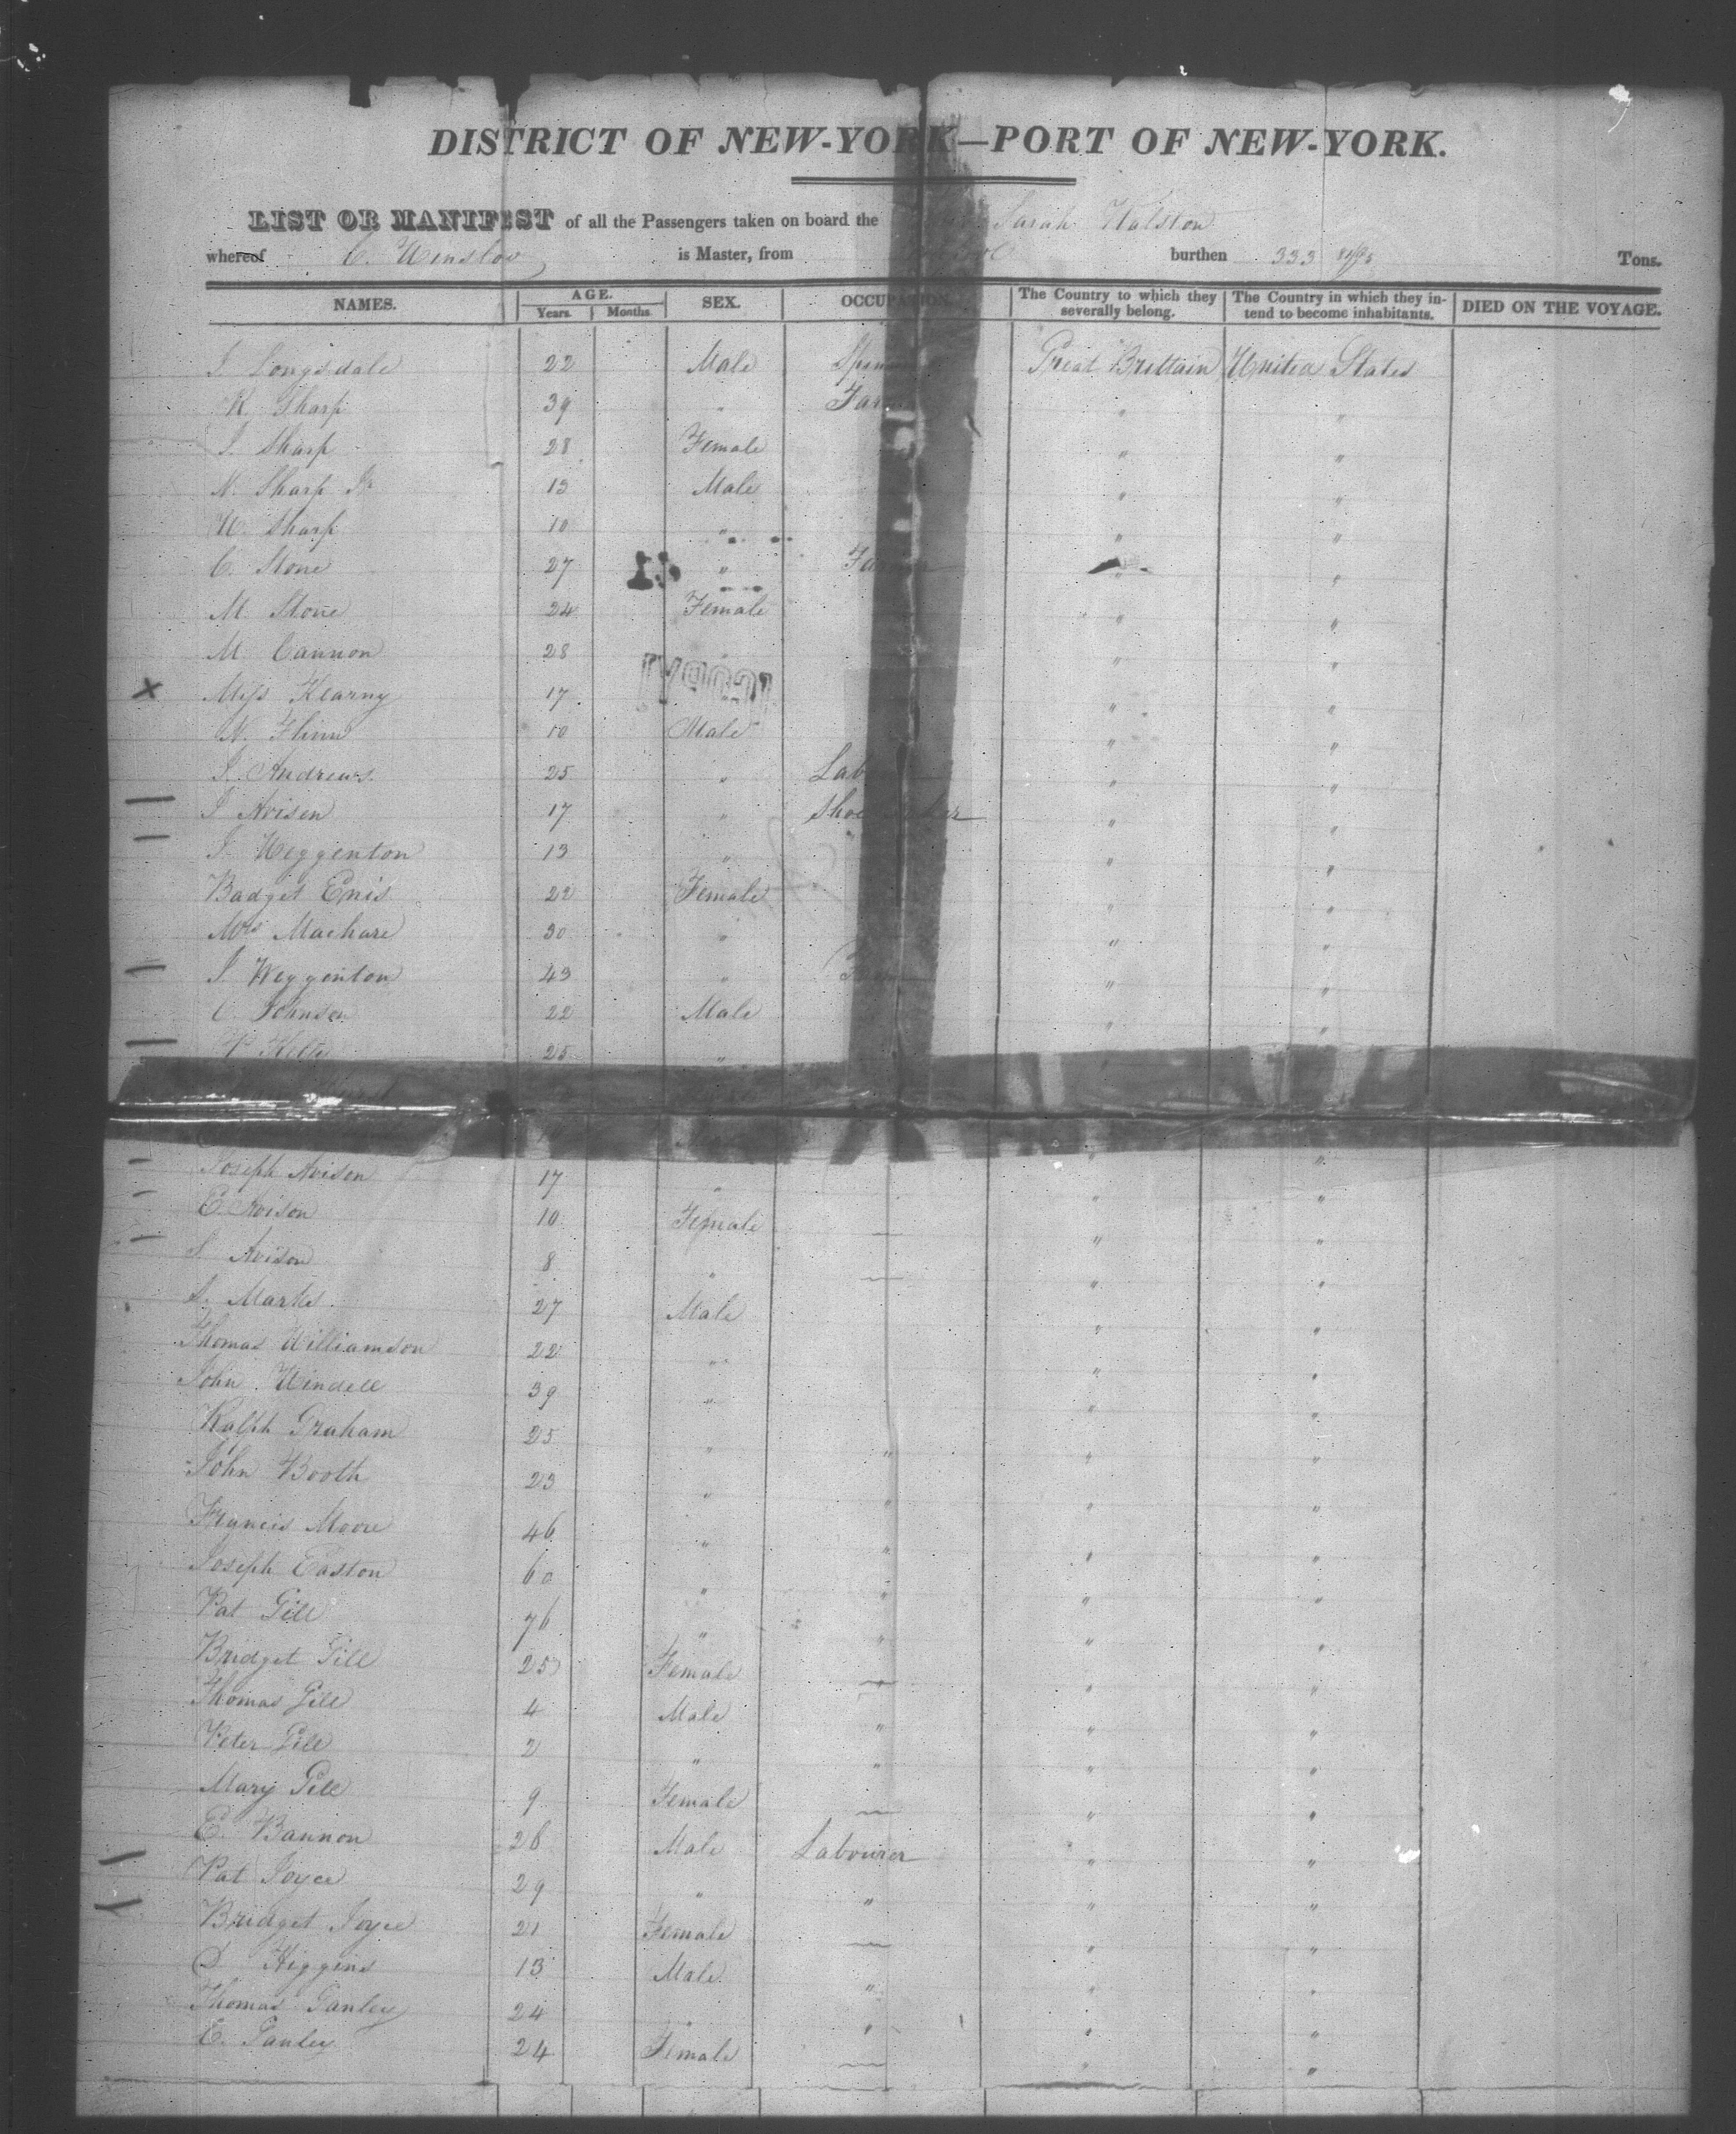 DISTRICT OF NEW-YORK—PORT OF NEW-YORK.
LIST OR MANIFEST of all the Passengers taken on board the Sarah Walston
whereof C. Winslow is Master, from burthen 333 Tons.
NAMES. AGE. Years. Months SEX. OCCUPATION. The Country to which they severally belong. The Country in which they intend to become inhabitants. DIED ON THE VOYAGE.
J Longsdale 22 Male Great Brittain United States
Sharp 39 " " "
J. Sharp 28 Female " "
N. Sharp Jr 13 Male " "
W. Sharp 10 " " "
C. Stone 27 " " "
M Stone 24 Female " "
M Cannon 28 " " "
Miss Kearny 17 " " "
N. Flinn Male " "
J. Andrews 25 " " "
J Avisen 17 " " "
J. Weggenton 13 " " "
Badget Enis 22 Female " "
Mrs Machare 30 " " "
J. Weggenton 43 " " "
C. Johnson 22 Male " "
25 " "
Joseph Avison 17 " " "
E Avison 10 Female — " "
S. Avison 8 " — " "
S. Marks 27 Male " "
Thomas Williamson 22 " " "
John Windell 39 " " "
Ralph Graham 25 " " " "
John Booth 23 " " " "
Francis Moore 46 " " " "
Joseph Easton 60 " " " "
Pat Gill 76 " " " "
Bridget Gill 25 Female — " "
Thomas Gill 4 Male " " "
Peter Gill 2 " " " "
Mary Gill 9 Female — " "
E. Bannon 26 Male Labourer " "
Pat Joyce 29 " " " "
Bridget Joyce 21 Female — " "
D Higgins 13 Male " " "
Thomas Ganley 24 " " " "
E. Ganley 24 Female — " "